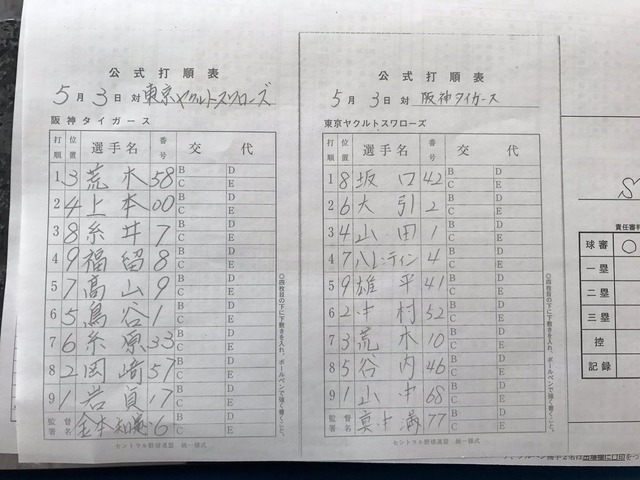 公式打順表
5月3日 対 東京ヤクルトスワローズ
阪神タイガース
打順 位置 選手名 番号 交代
1 3 荒木 58 B C D E
2 4 上本 00 B C D E
3 8 糸井 7 B C D E
4 9 福留 8 B C D E
5 7 高山 9 B C D E
6 5 鳥谷 1 B C D E
7 6 糸原 33 B C D E
8 2 岡崎 57 B C D E
9 1 岩貞 17 B C D E
監督署名 金本知憲 6 B C D E
セントラル野球連盟 統一様式
○四枚目の下に下敷きを入れ、ボールペンで強く書くこと。
公式打順表
5月3日 対 阪神タイガース
東京ヤクルトスワローズ
打順 位置 選手名 番号 交代
1 8 坂口 42 B C D E
2 6 大引 2 B C D E
3 4 山田 1 B C D E
4 7 バレンティン 4 B C D E
5 9 雄平 41 B C D E
6 2 中村 52 B C D E
7 3 荒木 10 B C D E
8 5 谷内 46 B C D E
9 1 山中 68 B C D E
監督署名 真中満 77 B C D E
セントラル野球連盟 統一様式
○四枚目の下に下敷きを入れ、ボールペンで強く書くこと。
責任審判
球審 ○
一塁
二塁
三塁
控
記録